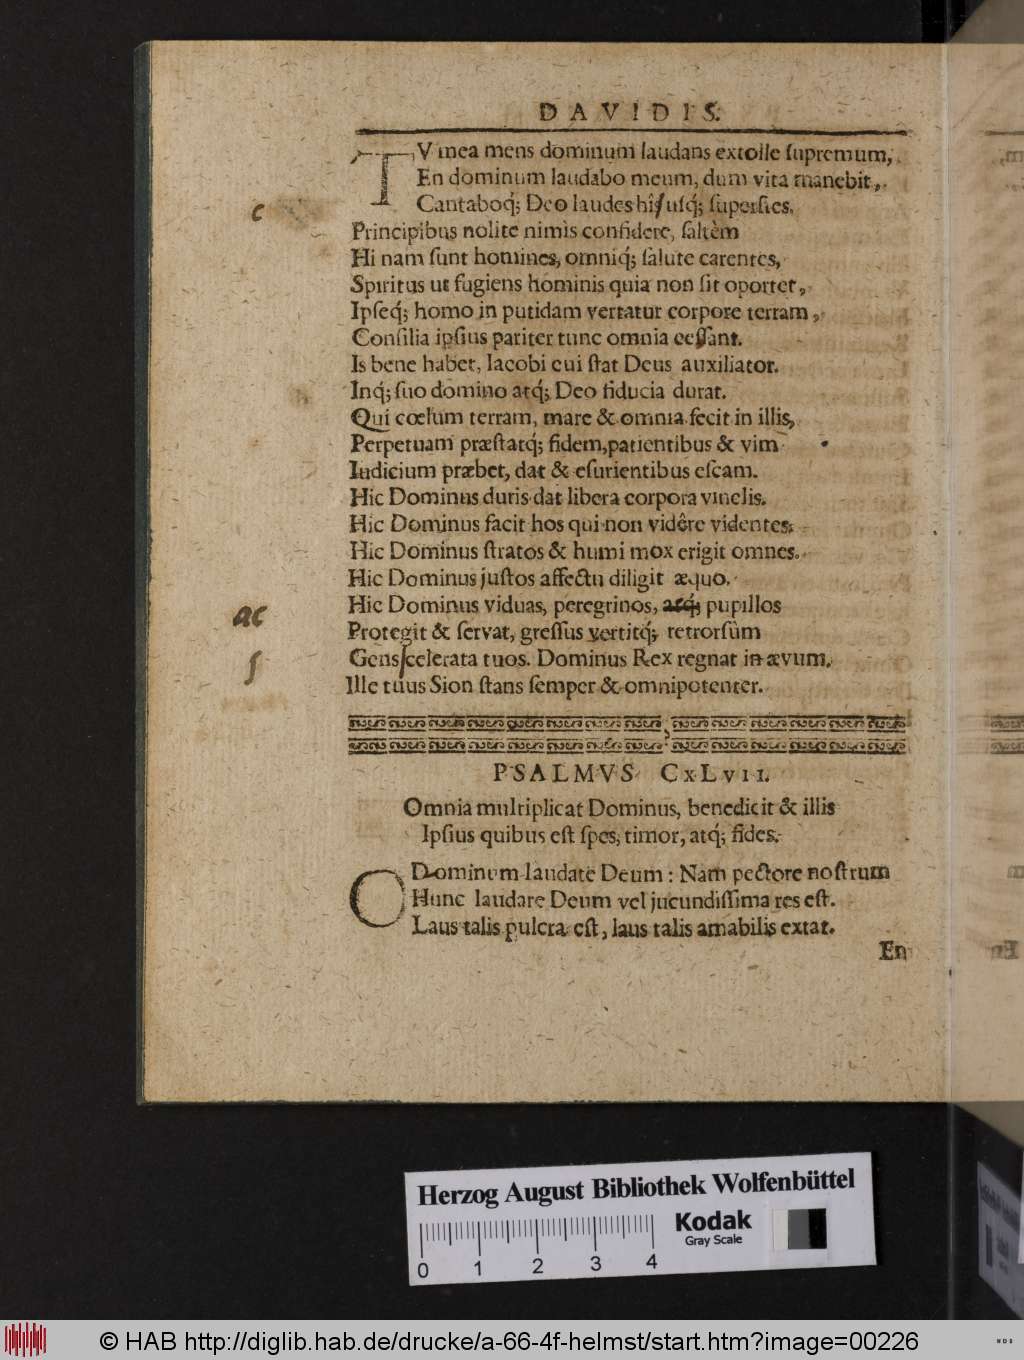 DAVIDIS.
TV mea mens dominum laudans extolle ſupremum,
En dominum laudabo meum, dum vita manebit,
Cantaboq́; Deo laudes hiſuſq́; ſuperſtes.
c
Principibus nolite nimìs confidere, ſaltèm
Hi nam ſunt homines, omniq́; ſalute carentes,
Spiritus ut fugiens hominis quia non ſit oportet,
Ipſeq́; homo in putidam vertatur corpore terram,
Conſilia ipſius pariter tunc omnia ceſſant.
Is bene habet, Iacobi cui ſtat Deus auxiliator.
Inq́; ſuo domino atq́; Deo fiducia durat.
Qui cœlum terram, mare & omnia fecit in illis,
Perpetuam præſtatq́; fidem, patientibus & vim
Iudicium præbet, dat & eſurientibus eſcam.
Hic Dominus duris dat libera corpora vinclis.
Hic Dominus facit hos qui non vidêre videntes.
Hic Dominus ſtratos & humi mox erigit omnes.
Hic Dominus juſtos affectu diligit æquo.
Hic Dominus viduas, peregrinos, atq́; pupillos
ac
Protegit & ſervat, greſſus vertitq́; retrorſùm
Gens ſcelerata tuos. Dominus Rex regnat in ævum.
ſ
Ille tuus Sion ſtans ſemper & omnipotenter.
PSALMVS CxLvii.
Omnia multiplicat Dominus, benedicit & illis
Ipſius quibus eſt ſpes, timor, atq́; fides.
O Dominum laudate Deum: Nam pectore noſtrum
Hunc laudare Deum vel jucundiſſima res eſt.
Laus talis pulcra eſt, laus talis amabilis extat.
En
Herzog August Bibliothek Wolfenbüttel
Kodak
Gray Scale
0 1 2 3 4
© HAB http://diglib.hab.de/drucke/a-66-4f-helmst/start.htm?image=00226